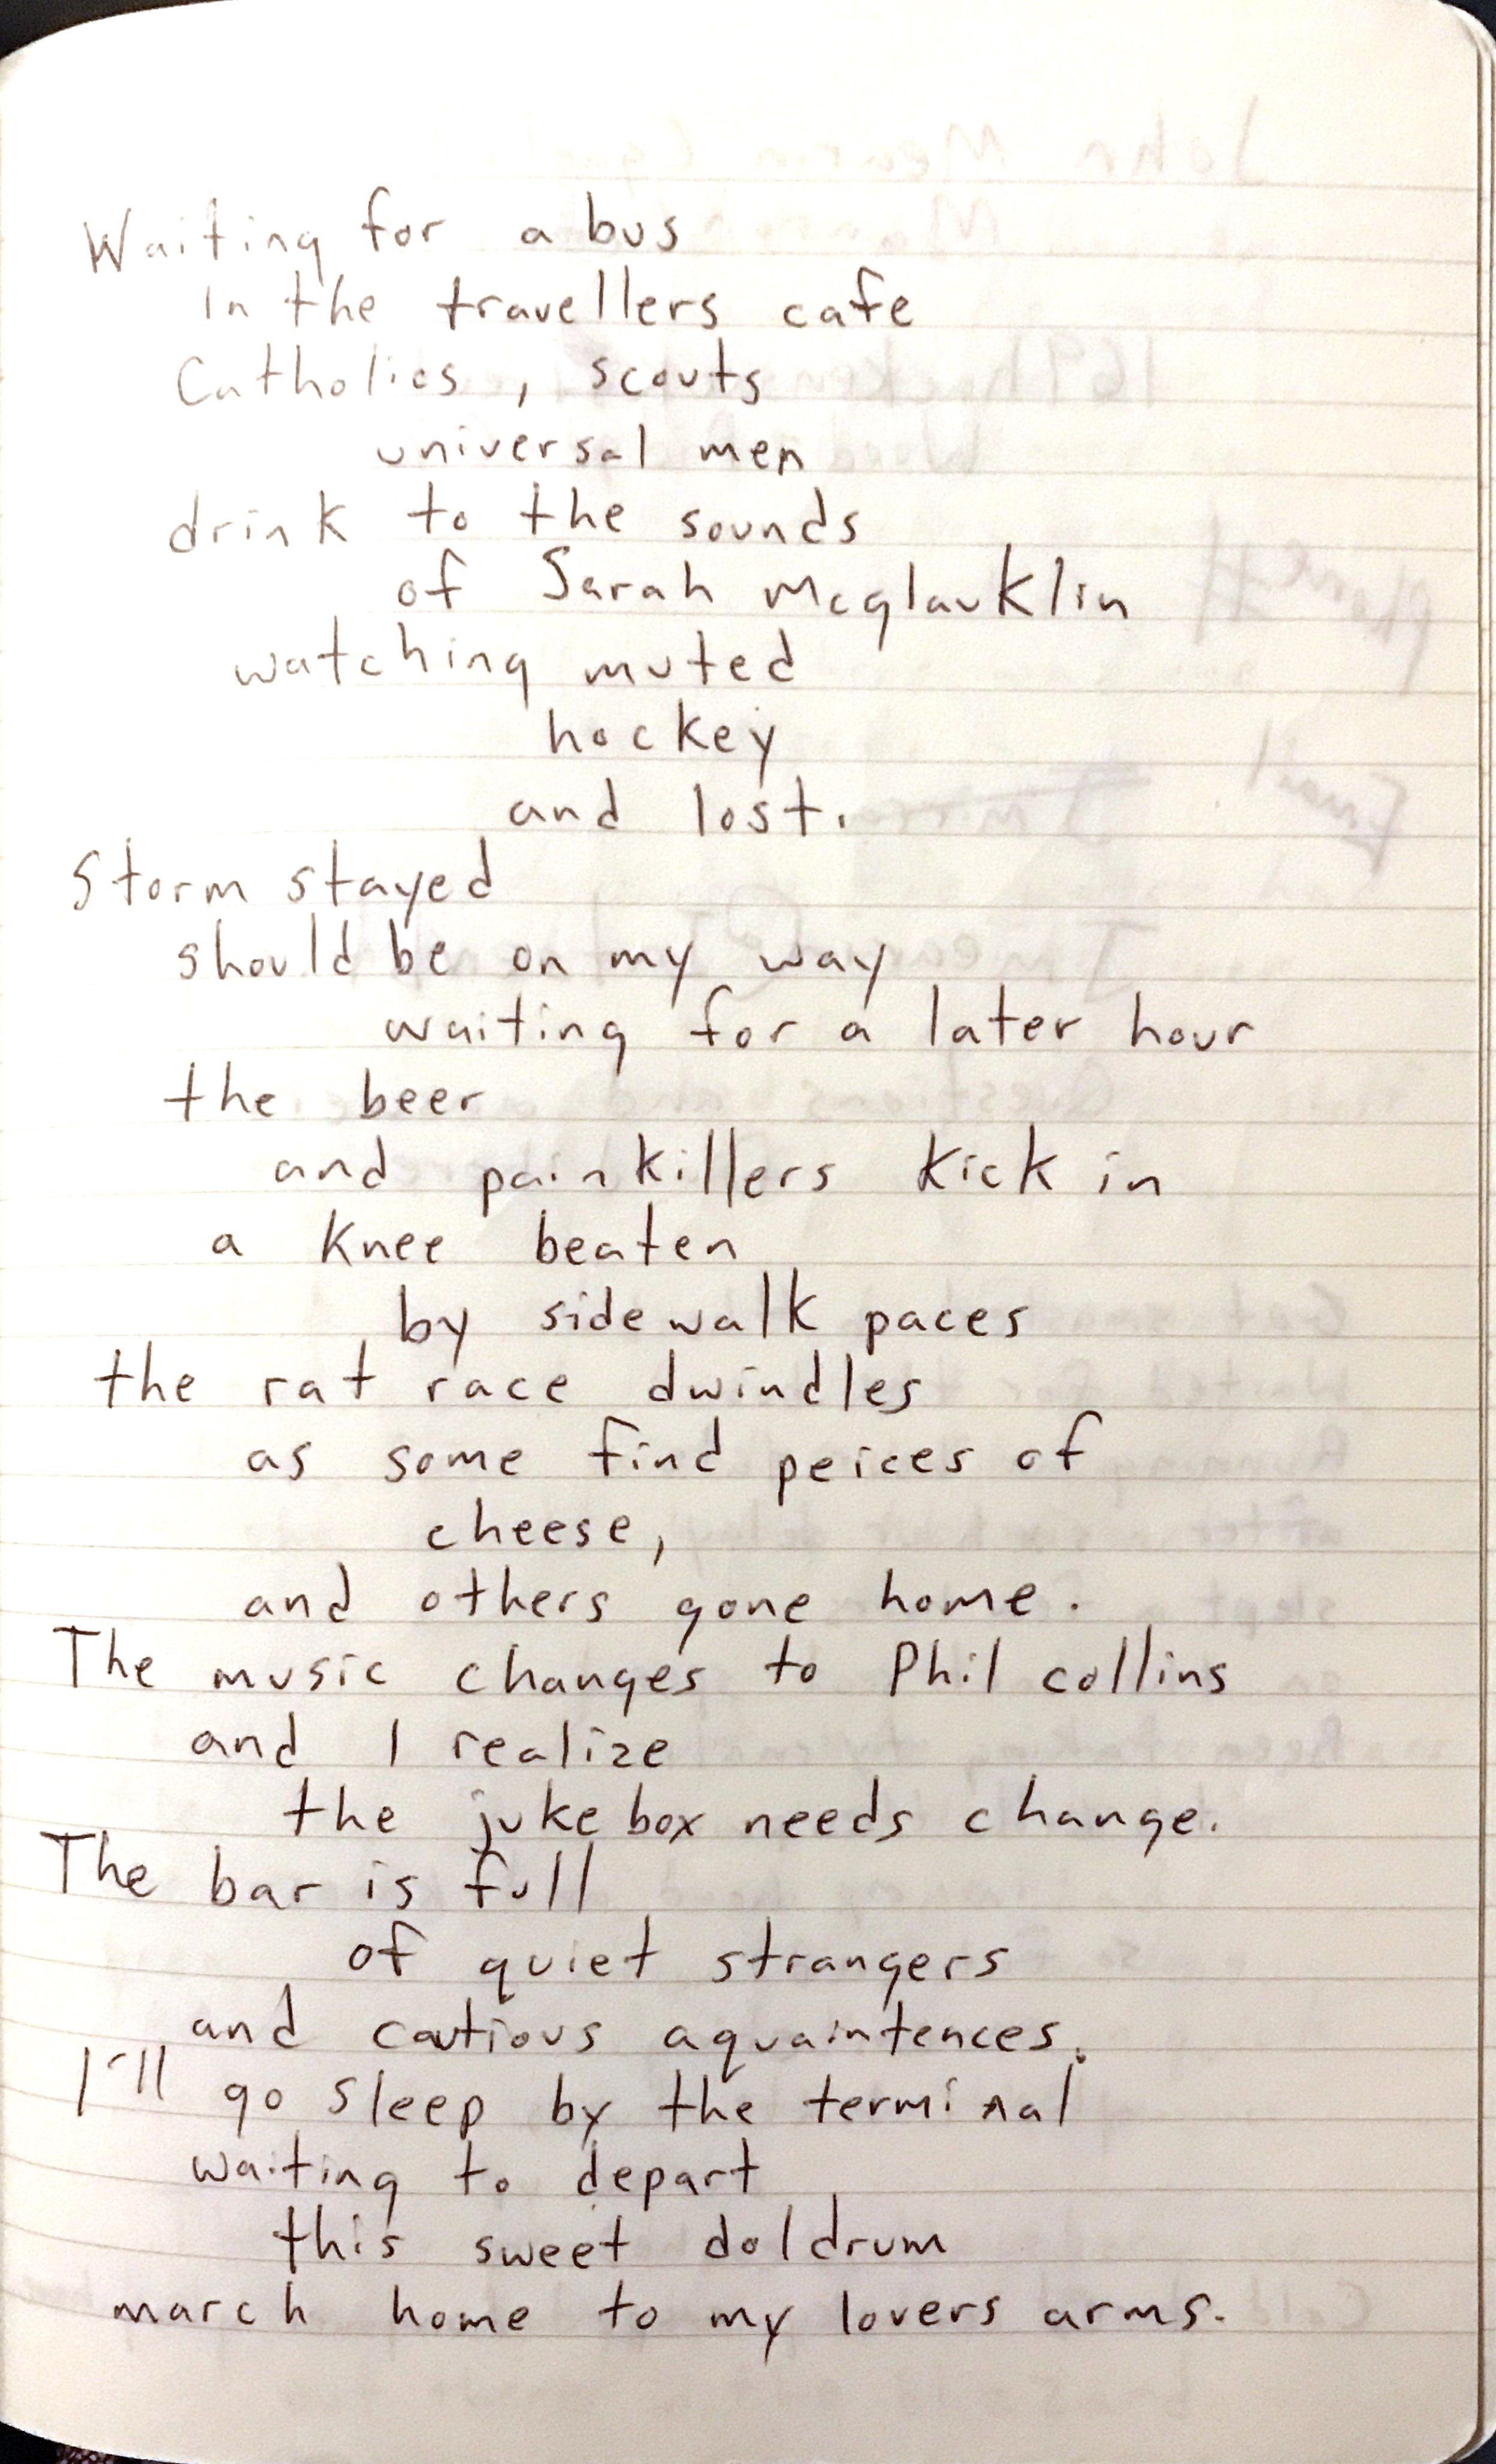 Waiting for a bus
in the travellers cafe
Catholics, scouts
universal men
drink to the sounds
of Sarah Mcglauklin
watching muted
hockey
and lost.
Storm stayed
should be on my way
waiting for a later hour
the beer
and painkillers kick in
a knee beaten
by sidewalk paces
the rat race dwindles
as some find peices of
cheese,
and others gone home.
The music changes to Phil collins
and I realize
the juke box needs change.
The bar is full
of quiet strangers
and cautious aquaintences.
I'll go sleep by the terminal
waiting to depart
this sweet doldrum
march home to my lovers arms.